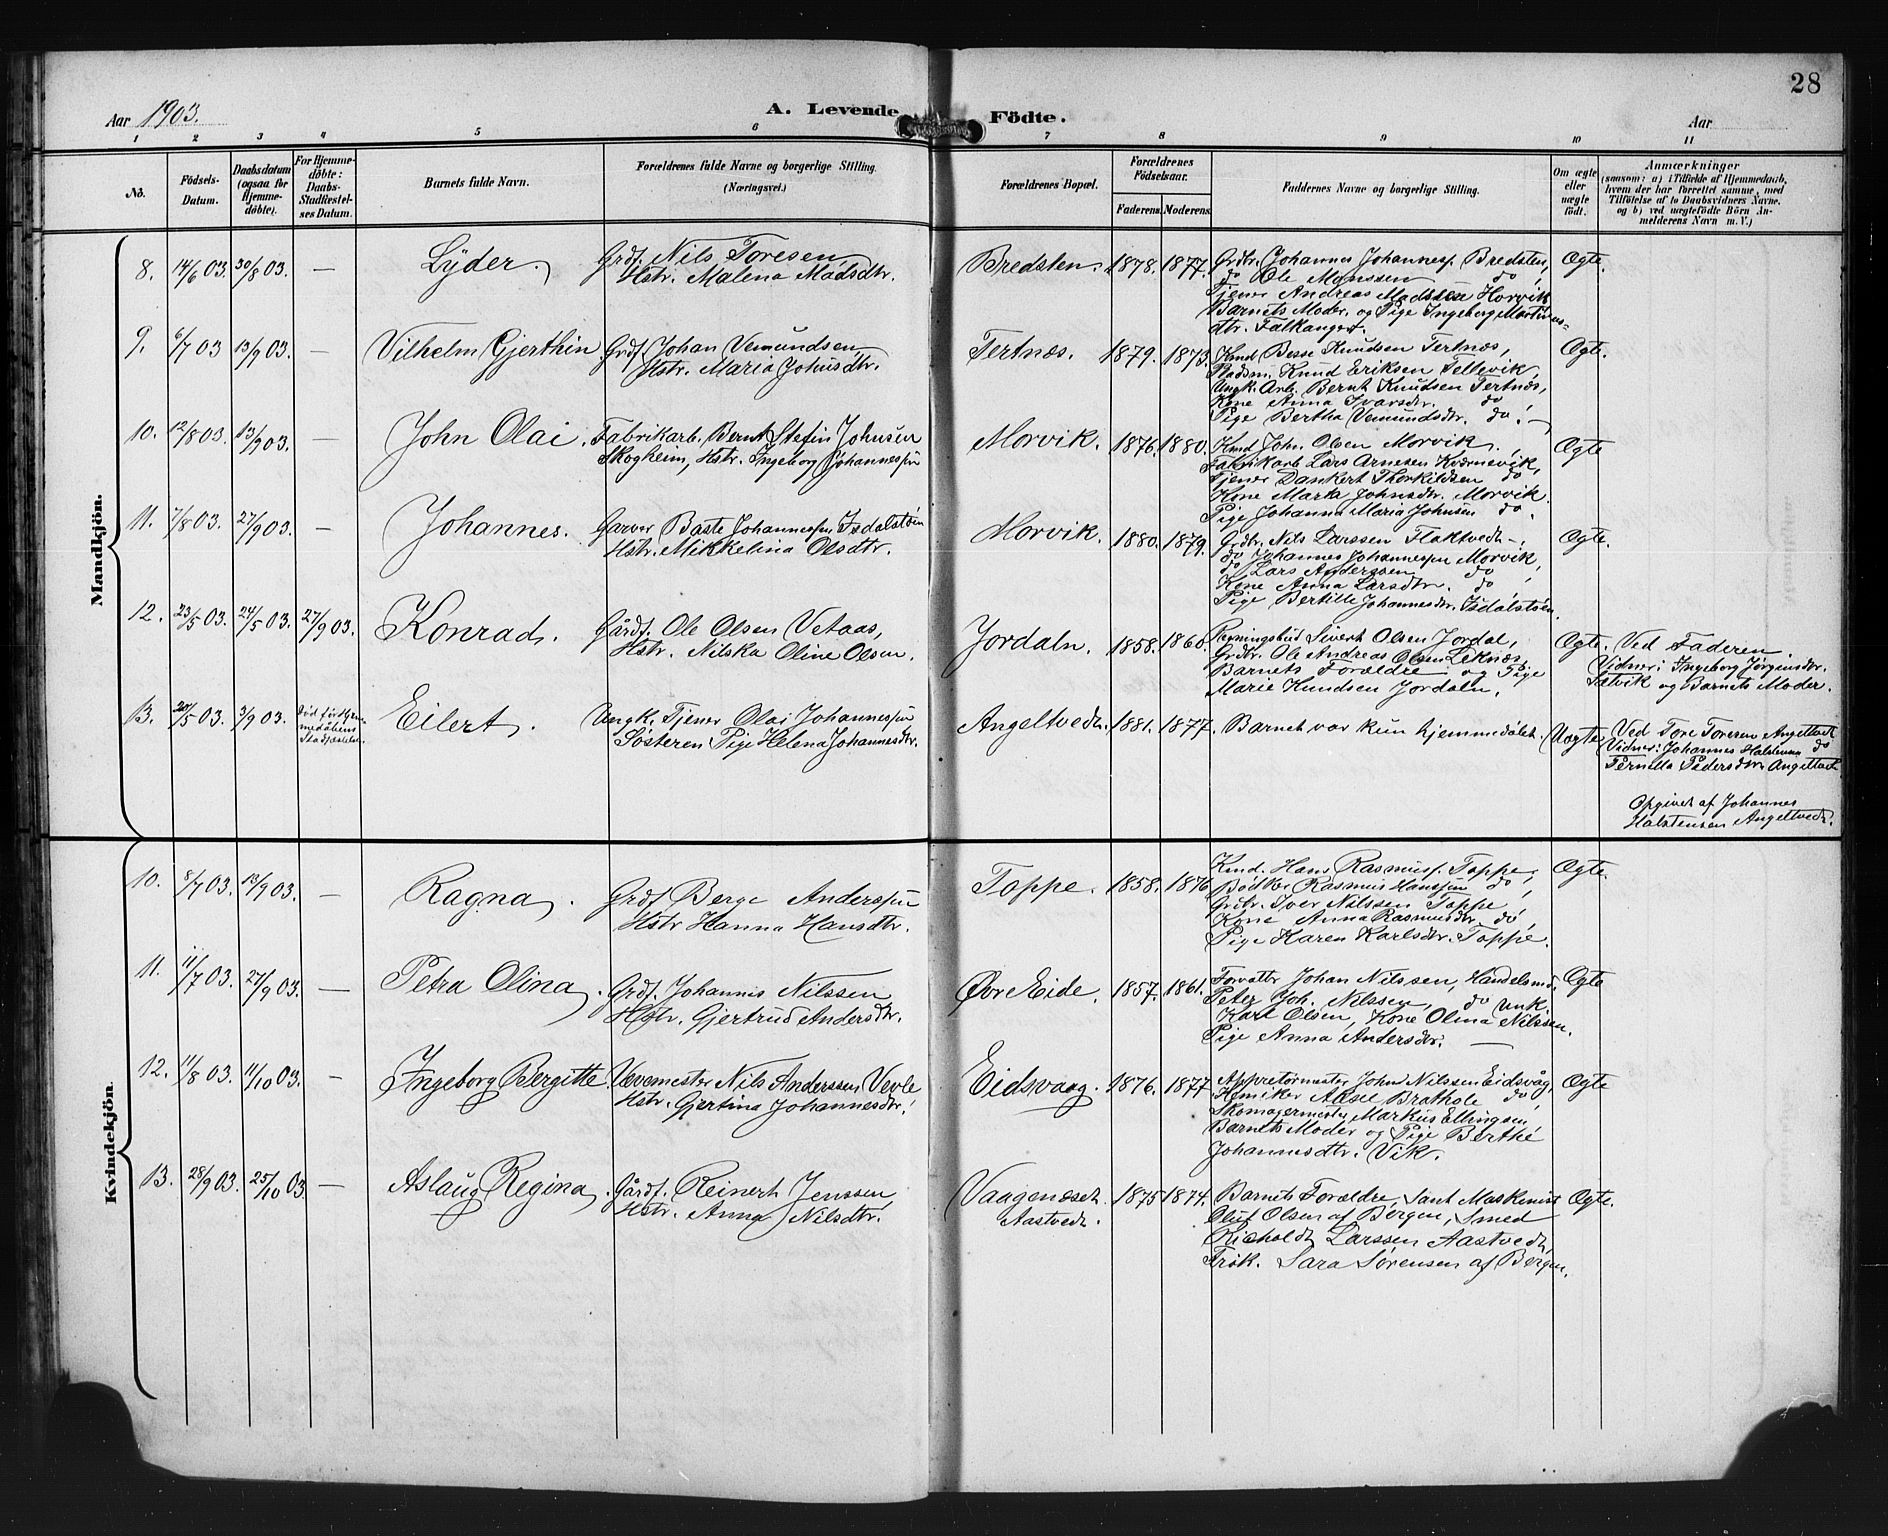 28
Aar 1903. A. Levende Födte. Aar
1 2 3 4 5 6 7 8 9 10 11
No. Födsels-Datum. Daabsdatum (ogsaa för Hjemme-döbte). For Hjemme-döbte: Daabs-Stadfæstel-ses Datum. Barnets fulde Navn. Forældrenes fulde Navne og borgerlige Stilling. (Næringsvei.) Forældrenes Bopæl. Forældrenes Födselsaar. Faderens. Moderens. Faddernes Navne og borgerlige Stilling. Om ægte eller uægte födt. Anmærkninger
(saasom: a) i Tilfælde af Hjemmedaab, hvem der har forrettet samme, med Tilföielse af to Daabsvidners Navne. og b) ved uægtefödte Börn An-melderens Navn m. V.)
Mandkjön.
8. 14/6 03. 30/8 03. — Lyder. Grdf. Nils Toresen
Hstr. Malena Madsdtr. Bredsten. 1878. 1877. Grdbr. Johannes Johannesp. Bredsten,
do Ole Monssen do,
Tjener Andreas Madssen Horvik
Barnets Moder. og Pige Ingeborg Martines-
dtr. Falkanger.
Ægte.
9. 6/7 03 13/9 03. — Vilhelm Gjerthin. Grdf. Johan Vemundsen
Hstr. Maria Johnsdtr. Tertnæs. 1879. 1873. Kmd Besse Knudsen Tertnæs,
Stadsm. Knud Eriksen Tellevik,
Ungk. Arb. Bernt Knudsen Tertnæs,
Kone Anna Ivarsdtr. do,
Pige Bertha Vemundsdtr. do. —
Ægte.
10. 12/8 03. 13/9 03. — John Olai. Fabrikarb. Bernt Stefin Johnsen
Skogheim, Hstr. Ingeborg Johannesson Morvik. 1876. 1880. Kmd John. Olsen Morvik,
Fabrikarb Lars Arnesen Kværnevik,
Tjener Dankert Thorkildsen do
Kone Marta Johnsdtr. Morvik.
Pige Johanna Maria Johnsen do.
Ægte
11. 7/8 03. 27/9 03. — Johannes. Garver Baste Johannessen Isdalstøen
Hstr. Mikkelina Olsdtr. Morvik. 1880. 1879. Grdbr. Nils Larssen Flaktvedt —,
do Johannes Johannessen Morvik,
do Lars Anderssen do,
Kone Anna Larsdtr. do
Pige Bertille Johannesdtr. Isdalstøen.
Ægte.
12. 23/5 03. 24/5 03. 27/9 03. Konrad. Gårdf. Ole Olsen Vetaas,
Hstr. Nilska Oline Olsen. Jordaln. 1858. 1860. Regningsbud Sivert Olsen Jordal,
Grdbr. Ole Andreas Olsen Leknæs,
Barnets Forældre og Pige
Marie Knudsen Jordaln.
Ægte. Ved Faderen.
Vidner: Ingeborg Jørgensdtr.
Sætvik og Barnets Moder.
13. 20/5 03. 3/9 03. Død før Hjem-
medåbens
Stadfæstelse. Eilert. Ungk. Tjener Olai Johannessen
Søsteren Pige Helena Johannesdtr. Angeltvedt. 1881. 1877. Barnet var kun hjemmedøbt. Uægte Ved Tore Toresen Angeltvedt
Vidner: Johannes Halstensen do
Pernilla Pedersdtr. Angeltvedt
Opgivet af Johannes
Halstensen Angeltvedt.
Kvindekjön.
10. 8/7 03. 13/9 03. — Ragna. Grdf Berge Anderssen
Hstr Hanna Hansdtr. Toppe. 1858. 1876 Kmd. Hans Rasmusp. Toppe,
Bødker Rasmus Hanssen do,
Grdbr. Iver Nilssen Toppe,
Kone Anna Rasmusdtr. do
Pige Karen Karlsdtr. Toppe.
Ægte.
11. 11/7 03. 27/9 03. — Petra Olina. Grdf. Johannis Nilssen
Hstr. Gjertrud Andersdtr. Øvre Eide. 1857. 1861. Forvalter Johan Nilssen, Handelsmd.
Peter Joh. Nilssen, do Unk.
Karl Olsen, Kone Olina Nilssen.
Pige Anna Andersdtr. —
Ægte
12. 11/8 03. 11/10 03. — Ingeborg Bergitte. Vævemester Nils Anderssen Vevle
Hstr. Gjertina Johannesdtr. Eidsvaag. 1876. 1877 Appretørmester John Nilssen Eidsvåg,
Kemiker Aasee Brathole do,
Skomagermester Markus Ellingsen,
Barnets Moder og Pige Berthe
Johannesdtr. Vik.
Ægte
13. 28/9 03. 25/10 03. — Aslaug Regina. Gårdf. Reinert Jenssen,
Hstr. Anna Nilsdtr. Vaagenæset
Aastvedt. 1875 1874. Barnets Forældre, samt Maskinist
Oluf Olsen af Bergen, Smed
Richoldt Larssen Aastvedt,
Frøk. Sara Sørensen af Bergen.
Ægte.